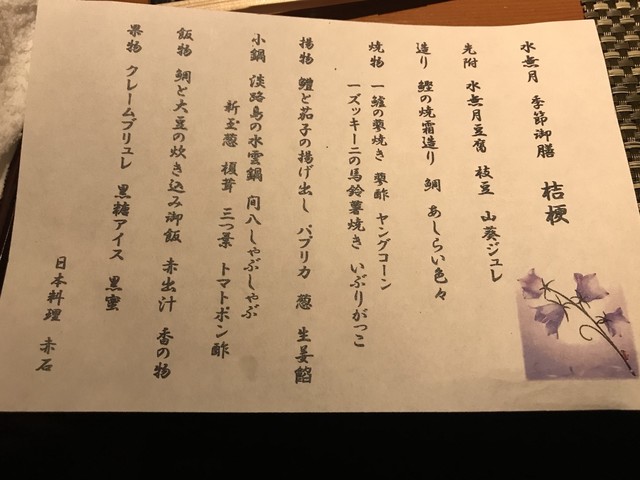 水無月 季節御膳 桔梗
先附 水無月豆腐 枝豆 山葵ジュレ
造り 鰹の焼霜造り 鯛 あしらい色々
焼物 一鱸の蓼焼き 蓼酢 ヤングコーン
一ズッキーニの馬鈴薯焼き いぶりがっこ
揚物 鱧と茄子の揚げ出し パプリカ 葱 生姜餡
小鍋 淡路島の水雲鍋 間八しゃぶしゃぶ
新玉葱 榎茸 三つ葉 トマトポン酢
飯物 鯛と大豆の炊き込み御飯 赤出汁 香の物
果物 クレームブリュレ 黒糖アイス 黒蜜
日本料理 赤石